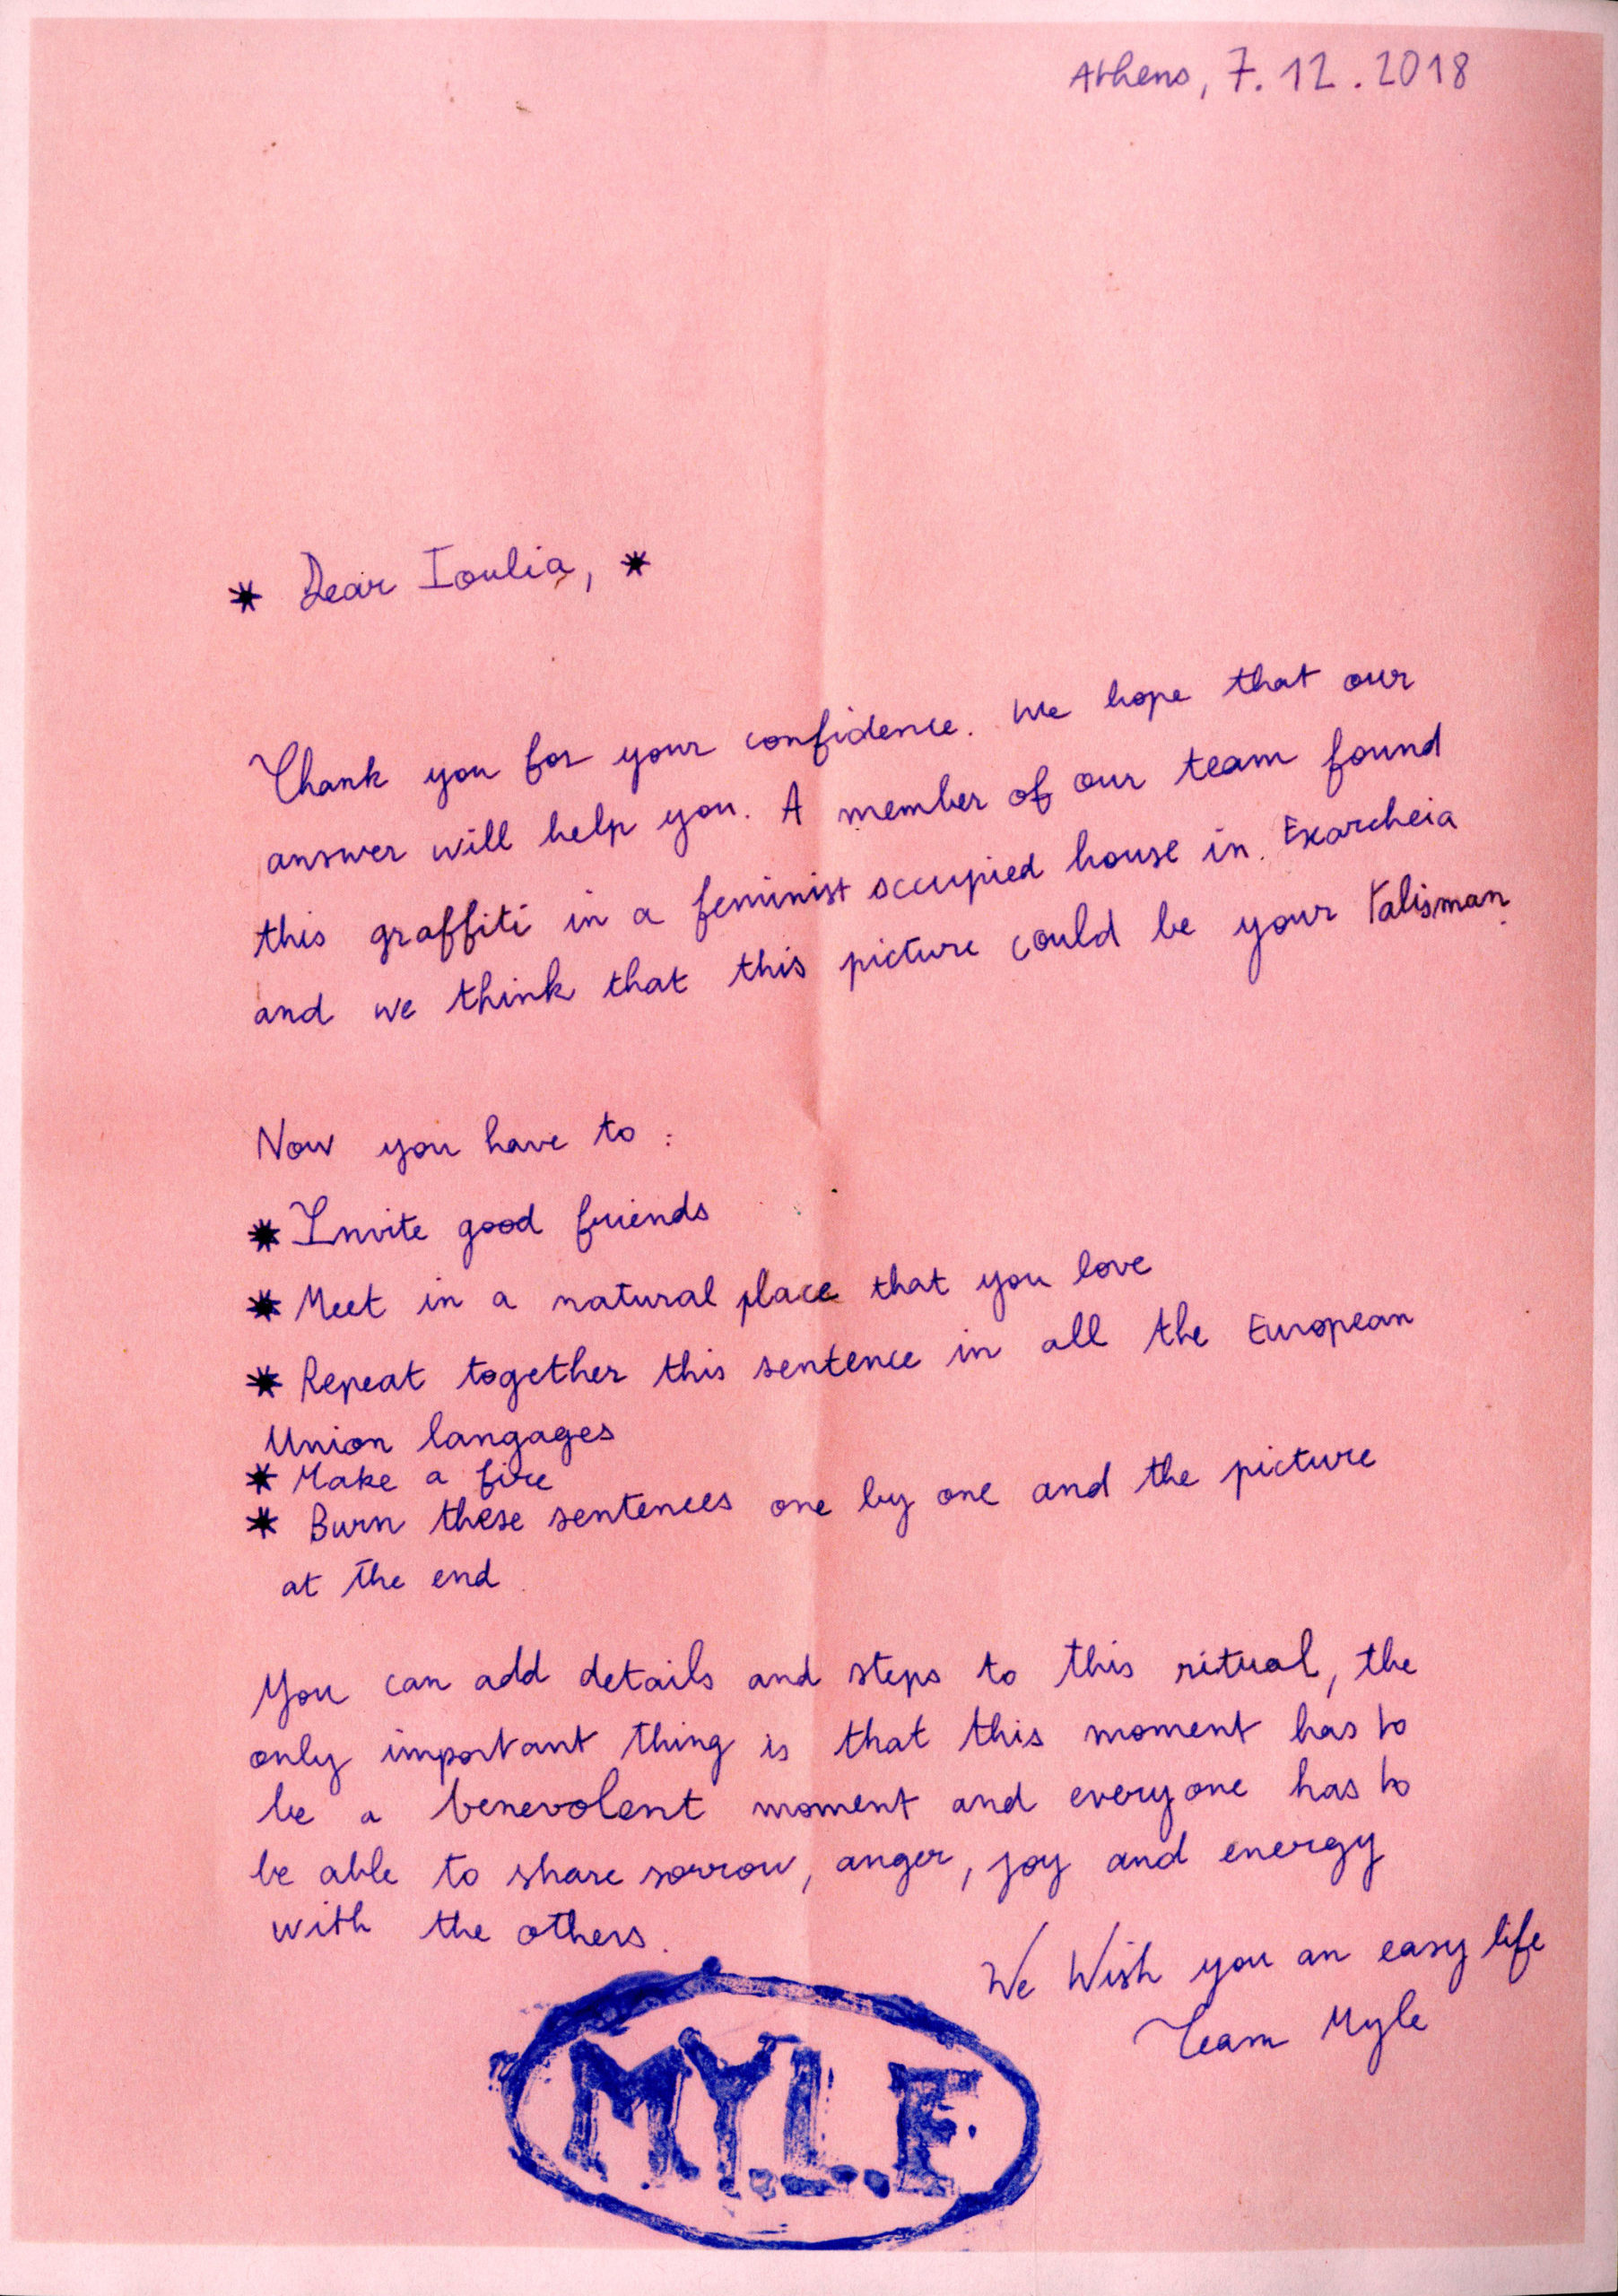 Athens, 7.12.2018
* Dear Ioulia, *
Thank you for your confidence. We hope that our
answer will help you. A member of our team found
this graffiti in a feminist occupied house in. Exarcheia
and we think that this picture could be your talisman.
Now you have to :
* Invite good friends
* Meet in a natural place that you love
* Repeat together this sentence in all the European
Union langages
* Make a fire
* Burn these sentences one by one and the picture
at the end.
You can add details and steps to this ritual, the
only important thing is that this moment has to
be a benevolent moment and everyone has to
be able to share sorrow, anger, joy and energy
with the others.
We Wish you an easy life
Team Myle
M.Y.L.E.